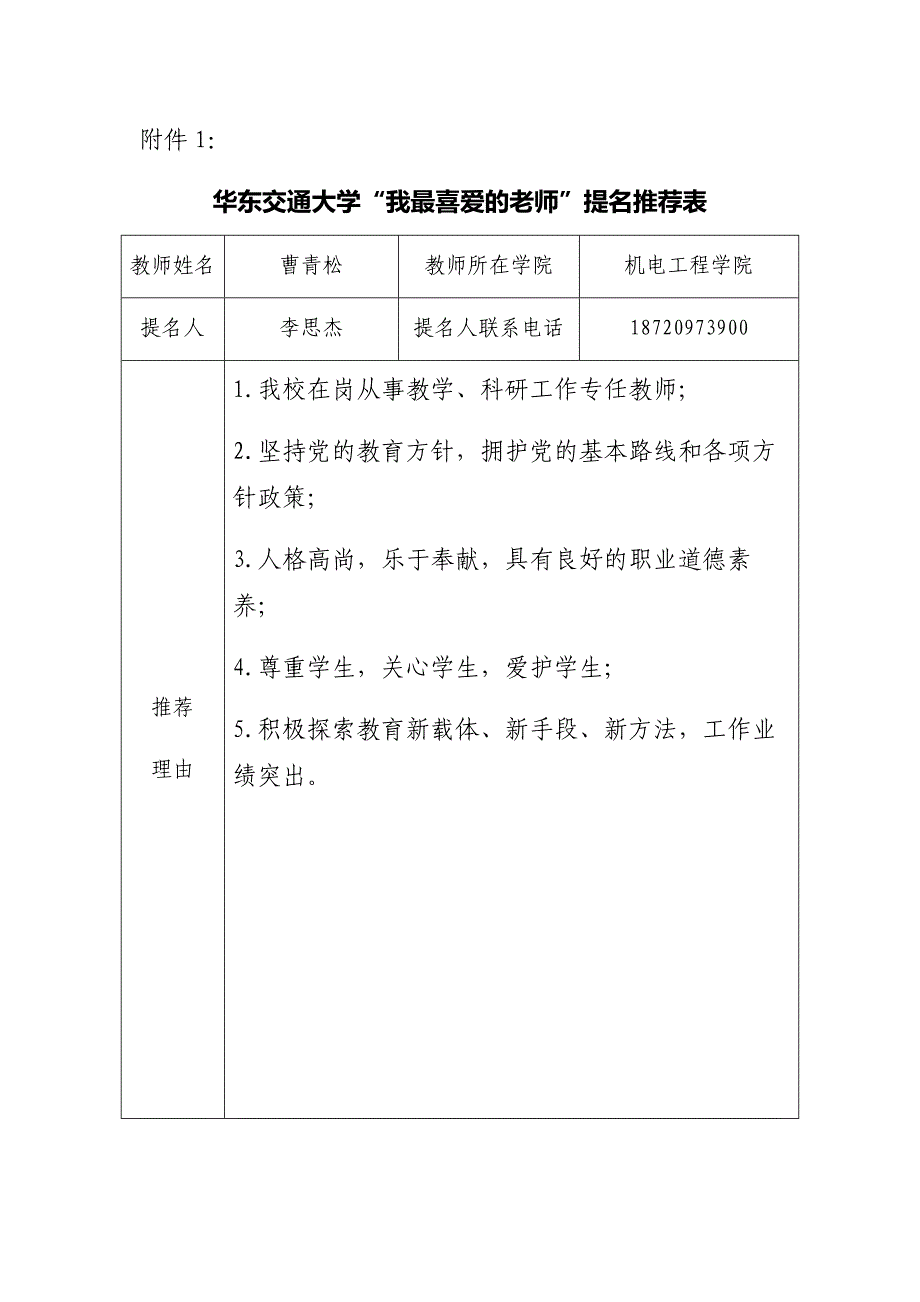 附件 1：
华东交通大学“我最喜爱的老师”提名推荐表
教师姓名 曹青松 教师所在学院 机电工程学院
提名人 李思杰 提名人联系电话 18720973900
1.我校在岗从事教学、科研工作专任教师；
2.坚持党的教育方针，拥护党的基本路线和各项方
针政策；
3.人格高尚，乐于奉献，具有良好的职业道德素
养；
4.尊重学生，关心学生，爱护学生；
推荐
理由
5.积极探索教育新载体、新手段、新方法，工作业
绩突出。